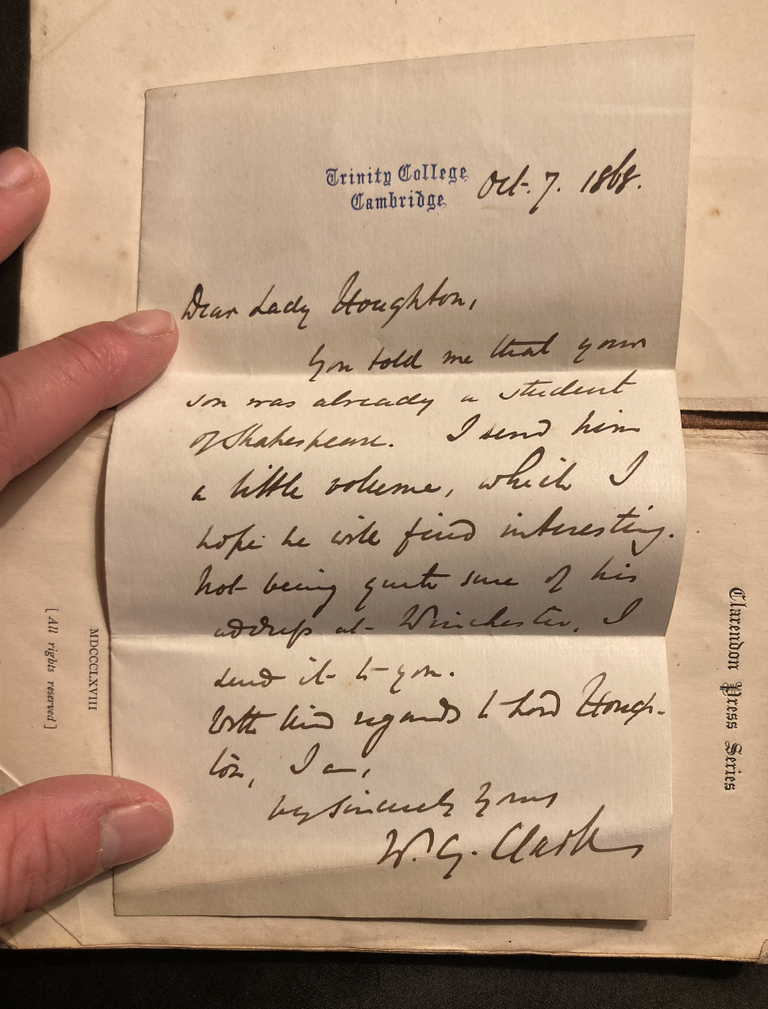 Trinity College
Cambridge
Oct. 7. 1868.
Dear Lady Houghton,
You told me that your
son was already a student
of Shakespeare. I send him
a little volume, which I
hope he will find interesting.
Not being quite sure of his
address at Winchester, I
send it to you.
With kind regards to Lord Hough-
ton, I am,
very sincerely yours
W. G. Clark
[All rights reserved]
MDCCCLXVIII
Clarendon Press Series